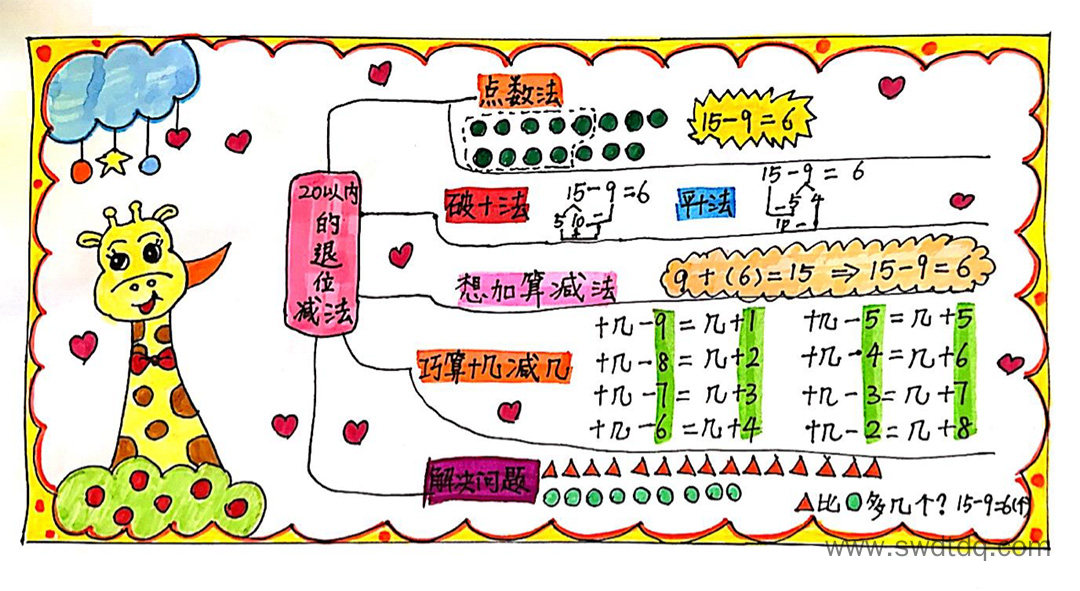 20以内
的
退
位
减法
点数法
15-9=6
破十法
15-9=6
5 10
平十法
15-9=6
5 4
10
想加算减法
9+(6)=15⇒15-9=6
巧算十几减几
十几-9=几+1
十几-8=几+2
十几-7=几+3
十几-6=几+4
十几-5=几+5
十几-4=几+6
十几-3=几+7
十几-2=几+8
解决问题
▲比●多几个?15-9=6(个)
www.swdtdq.com